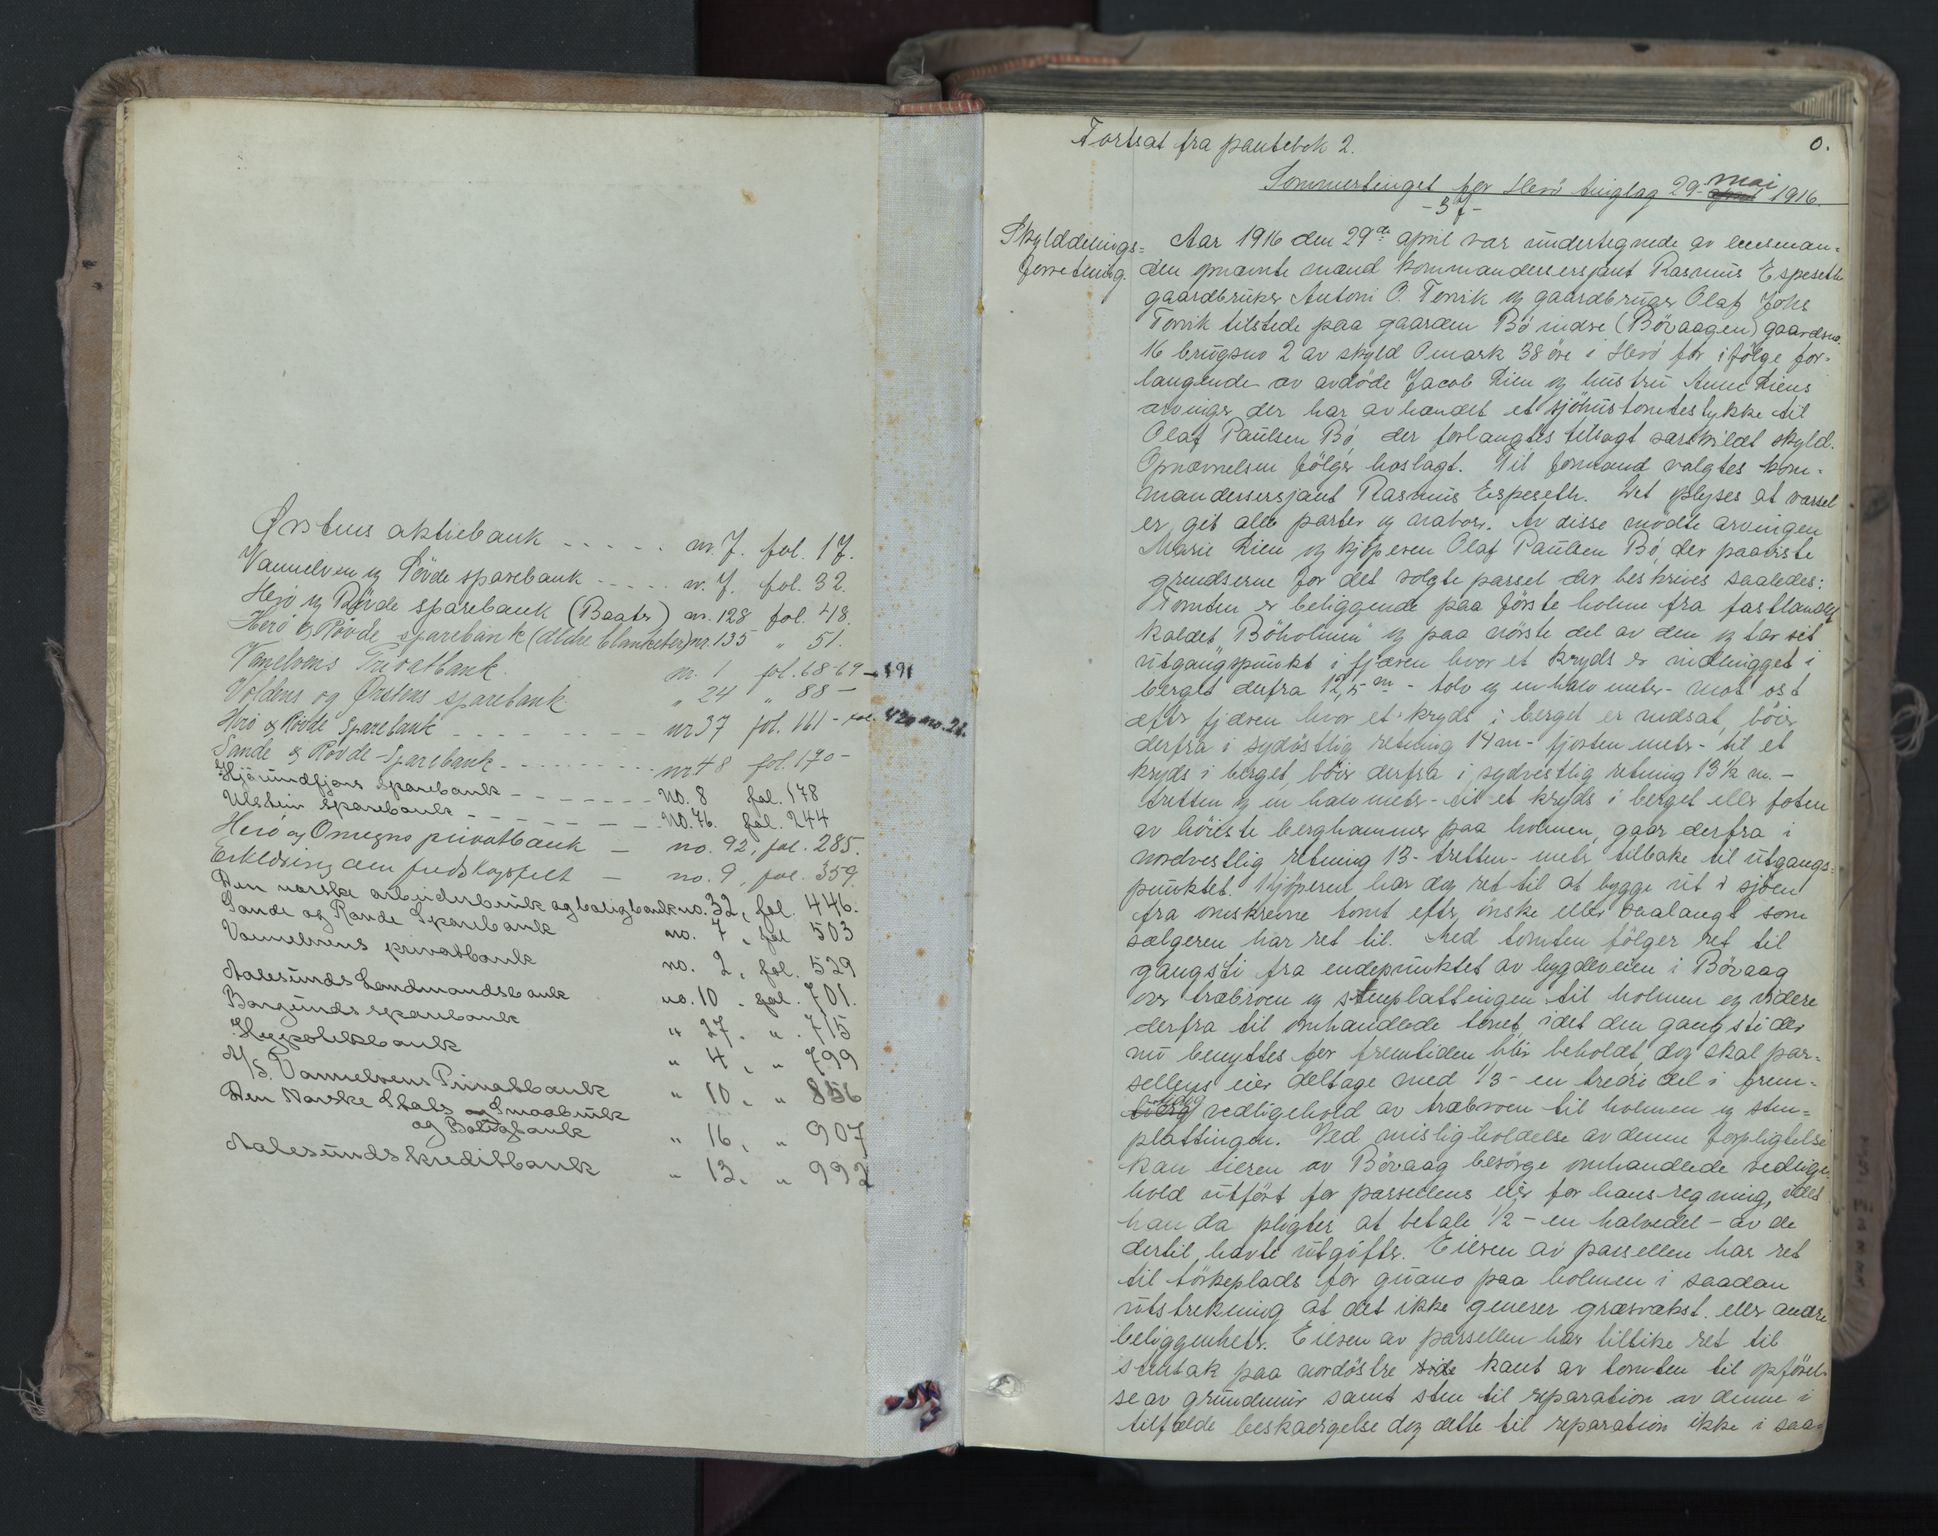 Ørstens aktiebank - - - - - nr. 7. fol. 17.
Vannelven og Sövde sparebank - - - - - nr. 7. fol. 32.
Herö og Rövde sparebank (Baater) nr. 128 fol. 48.
Herö og Rövde sparebank (ældre blanketer) nr. 135 " 51.
Vanelvens Privatbank. nr. 1 fol. 68-69 - 191
Voldens og Ørstens sparebank. " 24 " 88 -
Herö & Rövde Sparebank - - - - - - - nr 37 fol. 161 - fol. 420 no. 21.
Sande & Rovde - Sparebank - - - - - - - - - nr 48 fol. 170 -
Hjörundfjors sparebank - - - - - - - NO. 8 fol. 178
Ulstein sparebank - - - - - - - NO. 76. fol. 244
Herö og Omegns privatbank - no. 92, fol. 285.
Erklæring den - no. 9, fol. 359.
Den norske arbeiderbruk og boligbank no. 32, fol. 446.
Sande og Rovde Sparebank no. 7, fol 503
Vannelvens privatbank no. 2, fol. 529
Aalesunds Landmandsbank no. 10, fol. 701.
Borgunds sparebank " 27. " . 715
Hypotekbank " 4, " 799
A/S. Vannelvens Privatbank " 10, " 856
Den Norske Stats Smaabruk
og Boligbank " 16, " 907
Aalesunds kreditbank " 13, " 992
Fortsat fra pantebok 2. 0.
Sommertinget for Herö tinglag 29- mai 1916.
- 37 -
Skylddelings-
forretning.
Aar 1916 den 29de april var undertegnede av lensman-
den opnævnte mænd kommandersersjant Rasmus Espeseth
gaardbruker Antoni O. Torvik og gaardbruger Olaf Johs
Torvik tilstede paa gaarden Bö indre (Bövaagen) gaardsno.
16 brugsno 2 av skyld 0 mark 38 öre i Herö for ifölge for-
langende av avdöde Jacob Lien og hustru Anne Liens
arvinger der har avhændet et sjöhustomtestykke til
Olaf Paulsen Bö, der forlangtes tillagt særskildt skyld.
Opnævnelsen fölger hoslagt. Til formand valgtes kom-
mandersersjant Rasmus Espeseth. Det oplyses at varsel
er git alle parter og naboer. Av disse mödte arvingen
Marie Lien og kjöperen Olaf Paulsen Bö, der paaviste
grendserne for det solgte parsel der beskrives saaledes:
Tomten er beliggende paa förste holme fra fastlandet
kaldet "Böholmen" og paa nörste del av den og tar sit
utgangspunkt i fjæren hvor et kryds er indhugget i
berget derfra 12,5 m - tolv og en halv meter - mot ost
efter fjæren hvor et kryds i berget er nedsat, böier
derfra i sydöstlig retning 14 m - fjorten meter - til et
kryds i berget, böier derfra i sydvestlig retning 13½ m. -
tretten og en halv meter - til et kryds i berget eller foten
av höieste berghammer paa holmen, gaar derfra i
nordvestlig retning 13 - tretten - meter tilbake til utgangs-
punktet. Kjöperen har dog ret til at bygge ut i sjöen
fra omskrevne tomt efter önske eller saalangt som
sælgeren har ret til. Med tomten fölger ret til
gangsti fra endepunktet av bygdeveien i Bövaag
over træbroen og stenplattingen til holmen og videre
derfra til omhandlede tomt, idet den gangsti der
nu benyttes for fremtiden blir beholdt, dog skal par-
sellens eier deltage med 1/3 - en tredie del i frem-
tidig vedligehold av træbroen til holmen og sten-
plattingen. Ved misligholdelse av denne forpligtelse
kan eieren av Bövaag besörge omhandlede vedlige-
hold utfört for parsellens eier for hans regning, idet
han da pligter at betale 1/2 - en halvedel - av de
dertil havte utgifter. Eieren av parsellen har ret
til törkeplads for guano paa holmen i saadan
utstrekning at det ikke generer græsvækst eller andre
beliggenheter. Eieren av parsellen har tillike ret til
stentak paa nordöstre side kant av tomten til opförel-
se av grundmur samt sten til reparation av denne i
tilfælde beskadigelse dog dette til reparation ikke i saa-